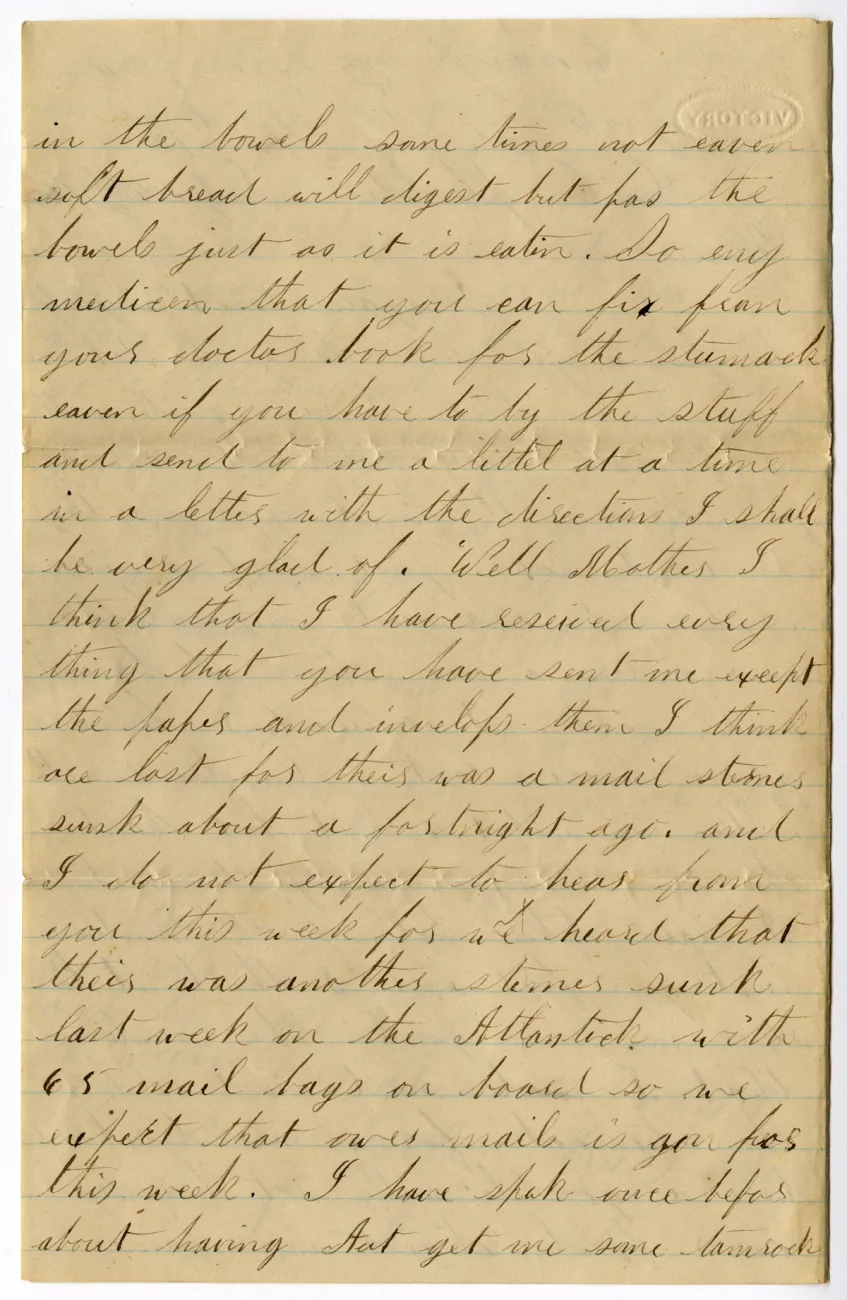 VICTORY
in the bowels some times not eaven
soft bread will digest but pas the
bowels just as it is eatin. So eny
medicen that you can fix from
your doctor book for the stumack
eaven if you have to by the stuff
and send to me a littel at a time
in a letter with the directions I shall
be very glad of. Well Mother I
think that I have reseived every
thing that you have sent me except
the paper and invelops them I think
are lost for their was a mail stemer
sunk about a fortnight ago. and
I do not expect to hear from
you this week for we heard that
their was another stemer sunk
last week on the Atlantick with
65 mail bags on board so we
expect that ower mail is gon for
this week. I have spok once befor
about having get me some tamrock